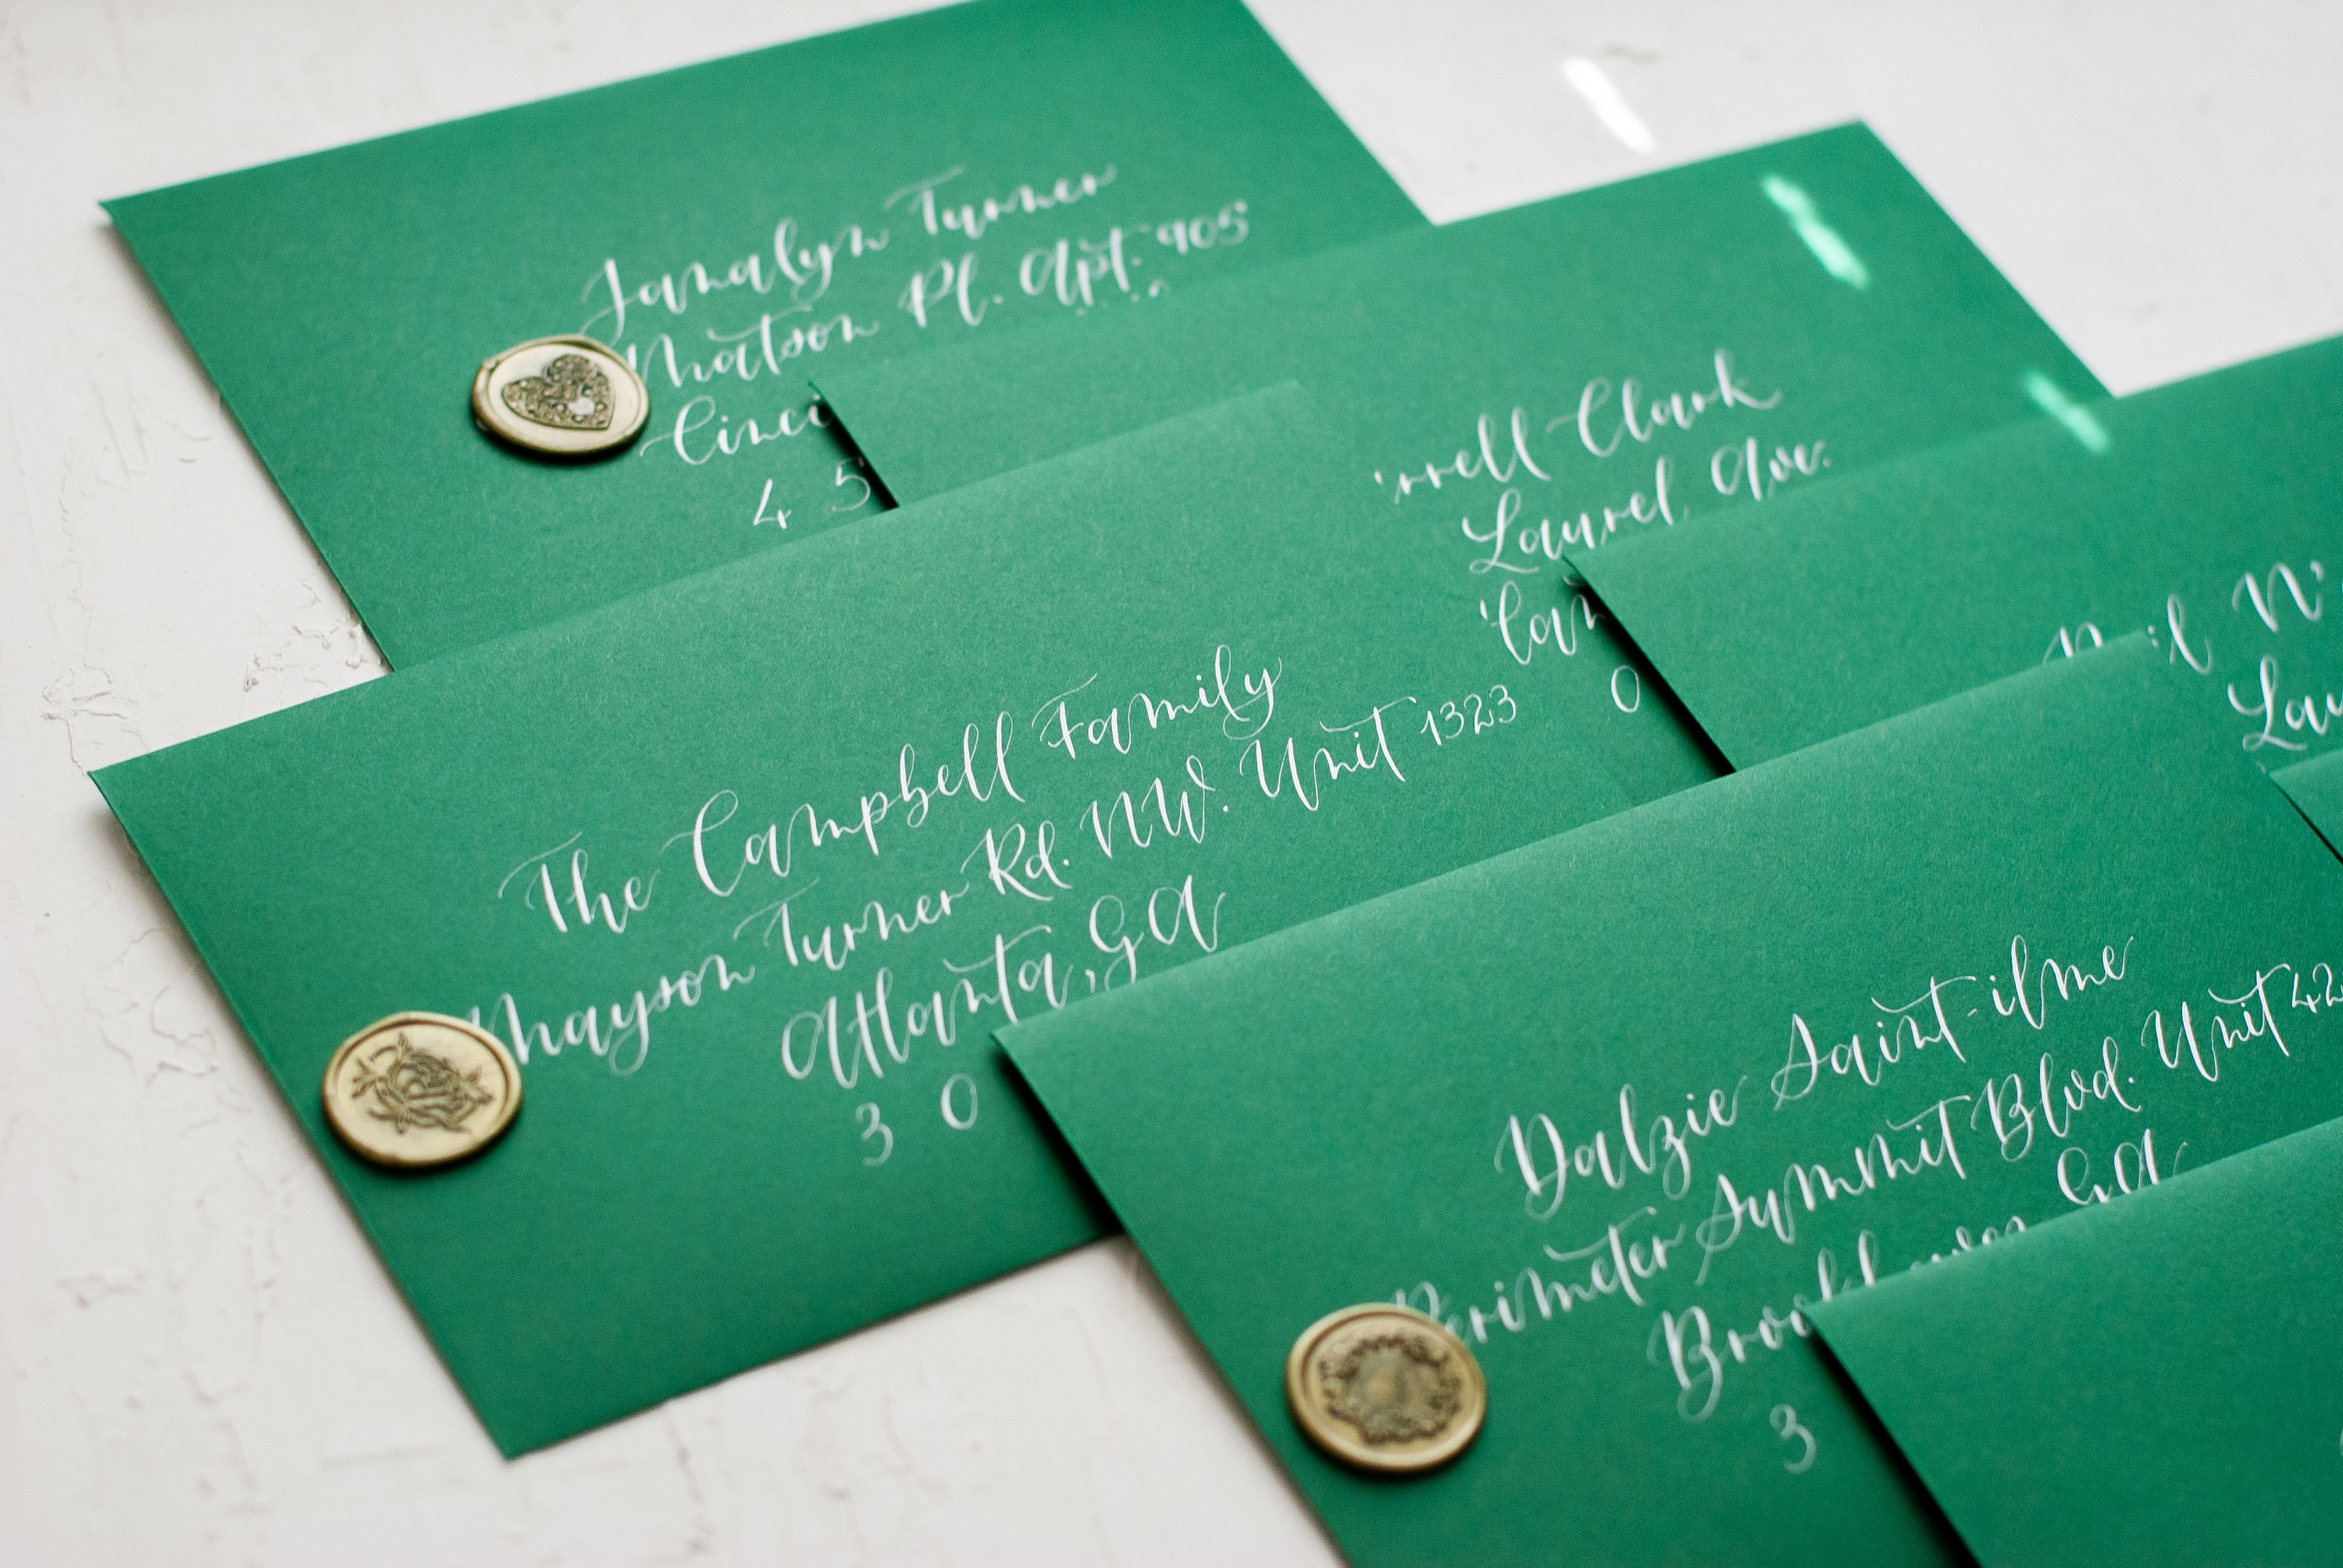 Janalyn Turner
Matson Pl. Apt. 905
Cinc
4 5
Clark
Laurel Ave.
0
The Campbell Family
Mayson Turner Rd. NW. Unit 1323
Atlanta, GA
3 0
Dalzie Saint-ilme
Perimeter Summit Blvd. Unit 42
GA
3